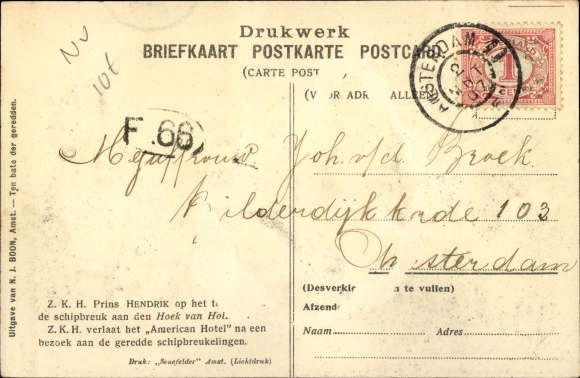 Nv
10t
Drukwerk
BRIEFKAART POSTKARTE POSTCARD
(CARTE POST
(V OR ADR ALLEE
AMSTERDAM
1
CENT
F .66
Mejuffrouw Joh. v/d. Broek.
Bilderdijkkade 103
Amsterdam
Uitgave van N. J. BOON, Amst. — Ten bate der geredden.
Z. K. H. Prins HENDRIK op het t
de schipbreuk aan den Hoek van Hol
Z. K. H. verlaat het „American Hotel" na een
bezoek aan de geredde schipbreukelingen.
Druk: „Senefelder" Amst. (Lichtdruk)
(Desverkie n te vullen)
Afzende
Naam Adres